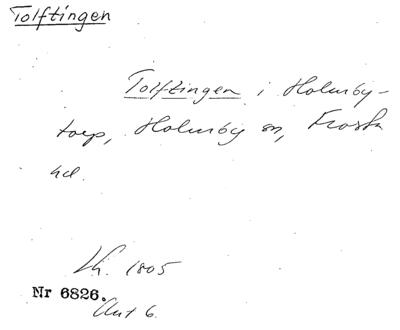 Tolftingen
Tolftingen i Holmby-
torp, Holmby sn, Frosta
hd.
Lh. 1805
Nr 6826.
Akt 6.